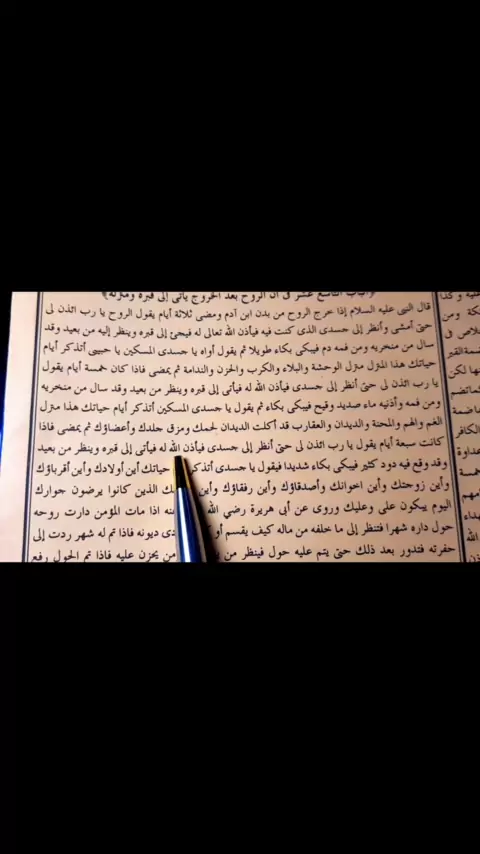 الباب التاسع عشر فى أن الروح بعد الخروج يأتى إلى قبره ومنزله
قال النبى عليه السلام إذا خرج الروح من بدن ابن آدم ومضى ثلاثة أيام يقول الروح يا رب ائذن لى
حتى أمشى وأنظر إلى جسدى الذى كنت فيه فيأذن الله تعالى له فيجئ إلى قبره وينظر إليه من بعيد وقد
سال من منخريه ومن فمه دم فيبكى بكاء طويلا ثم يقول أواه يا جسدى المسكين يا حبيبى أتذكر أيام
حياتك هذا المنزل منزل الوحشة والبلاء والكرب والحزن والندامة ثم يمضى فاذا كان خمسة أيام يقول
يا رب ائذن لى حتى أنظر إلى جسدى فيأذن الله له فيأتى إلى قبره وينظر من بعيد وقد سال من منخريه
ومن فمه وأذنيه ماء صديد وقيح فيبكى بكاء ثم يقول يا جسدى المسكين أتذكر أيام حياتك هذا منزل
الغم والهم والمحنة والديدان والعقارب قد أكلت الديدان لحمك ومزق جلدك وأعضاؤك ثم يمضى فاذا
كانت سبعة أيام يقول يا رب ائذن لى حتى أنظر إلى جسدى فيأذن الله له فيأتى إلى قبره وينظر من بعيد
وقد وقع فيه دود كثير فيبكى بكاء شديدا فيقول يا جسدى أتذكر حياتك أين أولادك وأين أقرباؤك
وأين زوجتك وأين اخوانك وأصدقاؤك وأين رفقاؤك وأين الذين كانوا يرضون جوارك
اليوم يبكون على وعليك وروى عن أبى هريرة رضي الله عنه اذا مات المؤمن دارت روحه
حول داره شهرا فتنظر إلى ما خلفه من ماله كيف يقسم ديونه فاذا تم له شهر ردت إلى
حفرته فتدور بعد ذلك حتى يتم عليه حول فينظر من من يحزن عليه فاذا تم الحول رفع